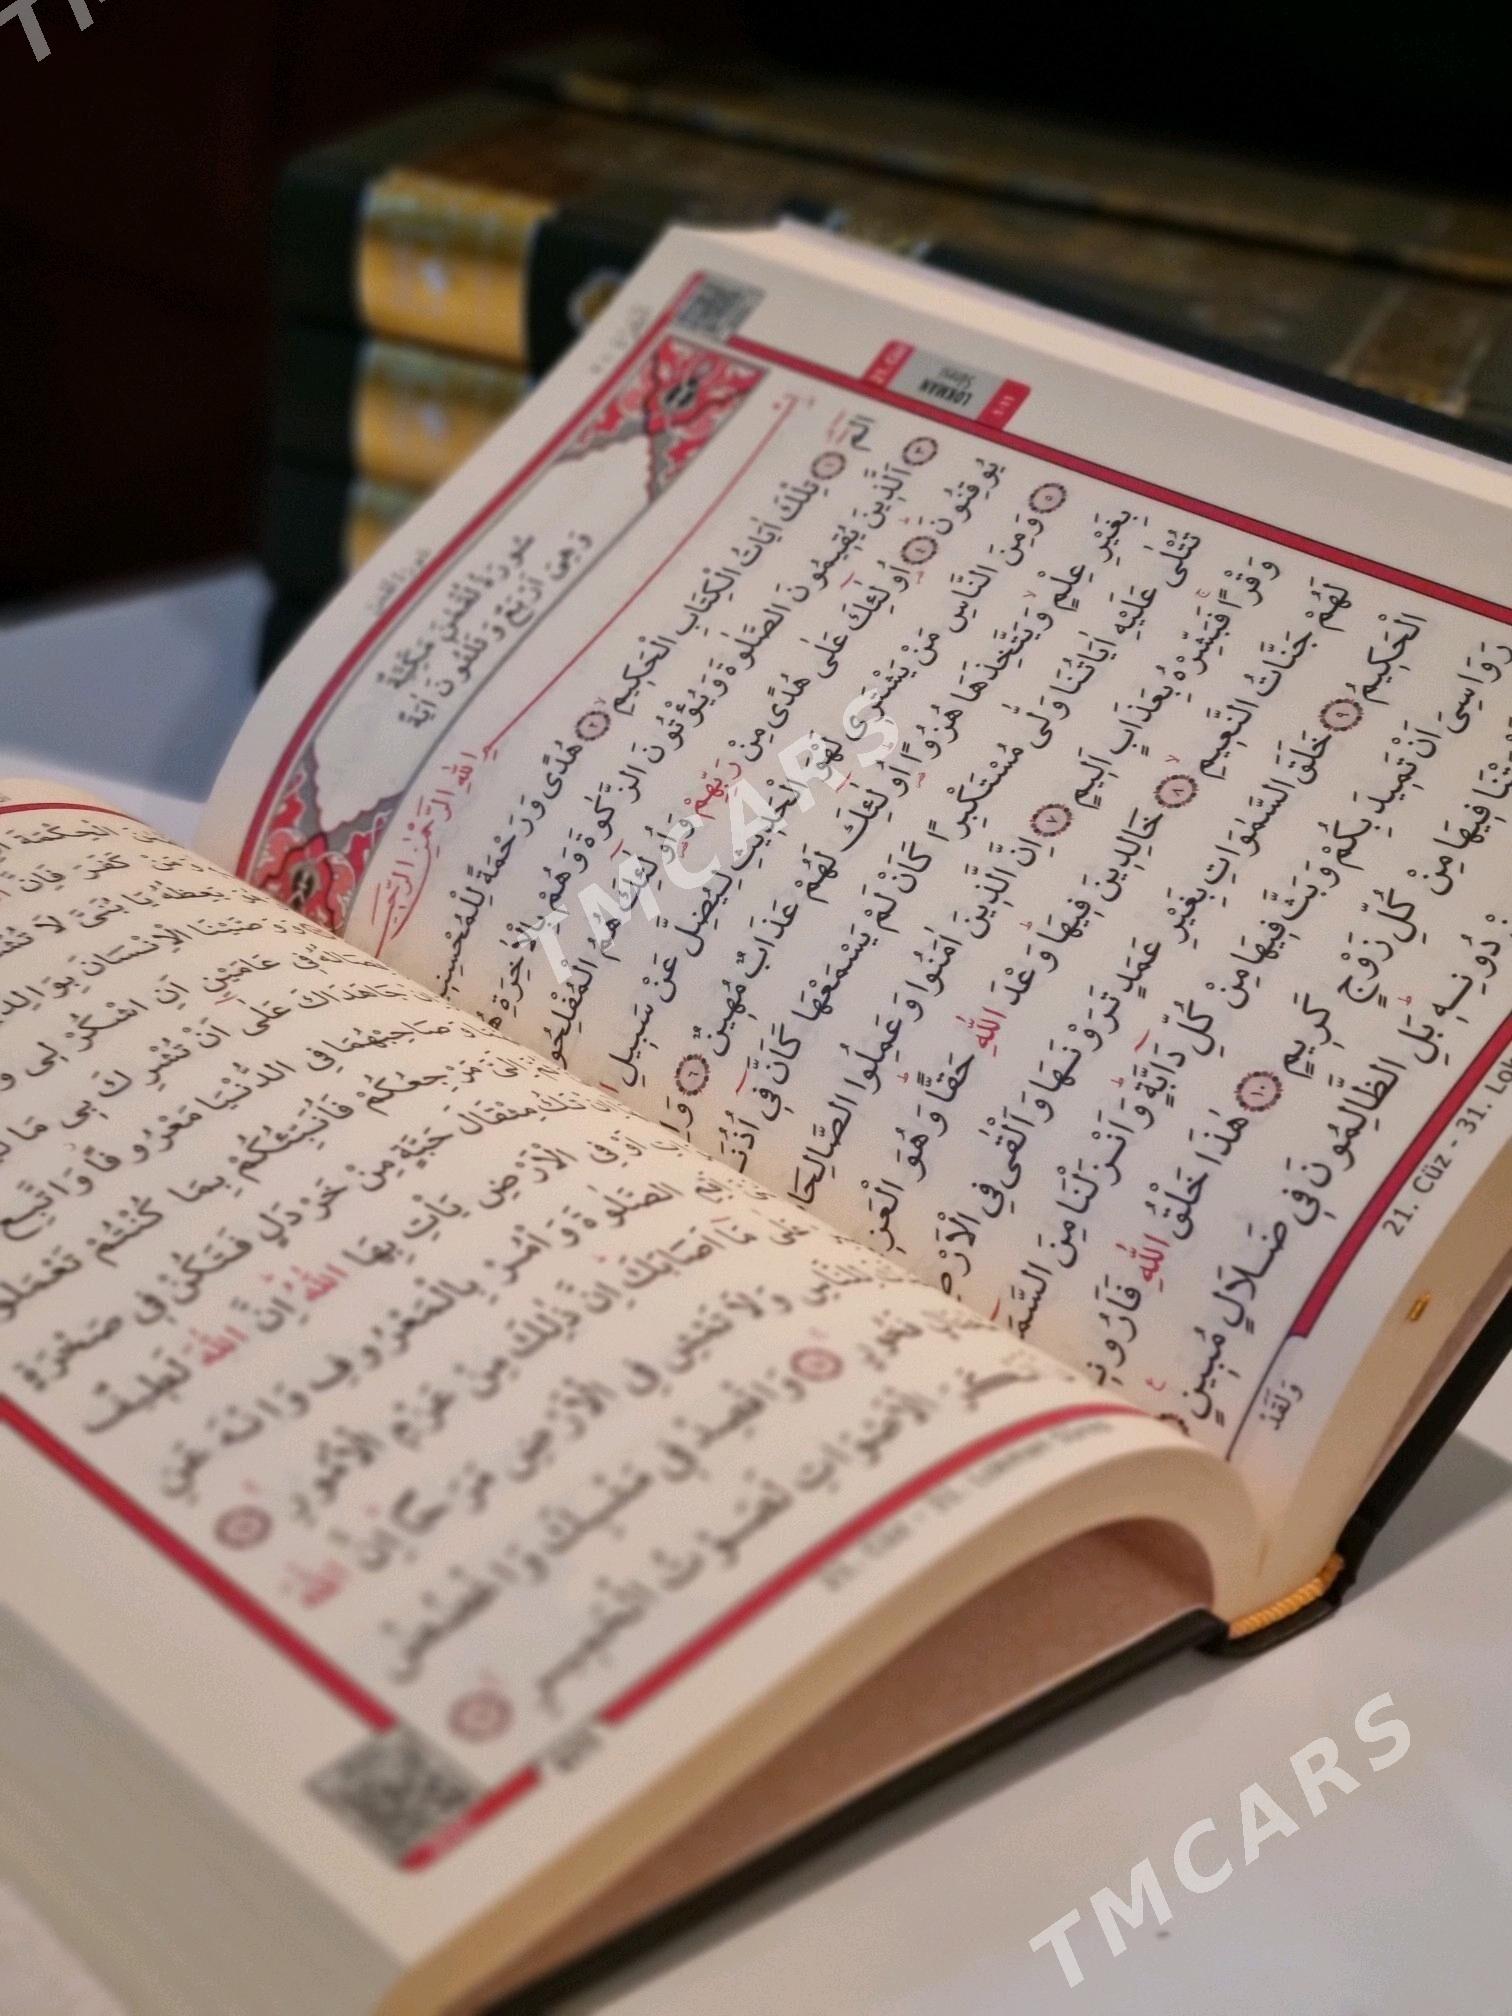 سُورَةُ لُقْمٰنَ مَكِّيَّةٌ
وَهِىَ اَرْبَعٌ وَثَلٰثُونَ اٰيَةً
اللّٰهِ الرَّحْمٰنِ الرَّحٖيمِ
الٓمٓ ﴿١﴾ تِلْكَ اٰيَاتُ الْكِتَابِ الْحَكٖيمِ ﴿٢﴾ هُدًى وَرَحْمَةً لِلْمُحْسِنٖ
اَلَّذٖينَ يُقٖيمُونَ الصَّلٰوةَ وَيُؤْتُونَ الزَّكٰوةَ وَهُمْ بِالْاٰخِرَةِ
يُوقِنُونَ ﴿٤﴾ اُو۬لٰٓئِكَ عَلٰى هُدًى مِنْ رَبِّهِمْ وَاُو۬لٰٓئِكَ هُمُ الْمُفْلِحُو
﴿٥﴾ وَمِنَ النَّاسِ مَنْ يَشْتَرٖى لَهْوَ الْحَدٖيثِ لِيُضِلَّ عَنْ سَبٖيلِ
بِغَيْرِ عِلْمٍ وَيَتَّخِذَهَا هُزُوًا اُو۬لٰٓئِكَ لَهُمْ عَذَابٌ مُهٖينٌ ﴿٦﴾
تُتْلٰى عَلَيْهِ اٰيَاتُنَا وَلّٰى مُسْتَكْبِرًا كَاَنْ لَمْ يَسْمَعْهَا كَاَنَّ فٖٓى اُذُنَ
وَقْرًا فَبَشِّرْهُ بِعَذَابٍ اَلٖيمٍ ﴿٧﴾ اِنَّ الَّذٖينَ اٰمَنُوا وَعَمِلُوا الصَّالِحَا
لَهُمْ جَنَّاتُ النَّعٖيمِ ﴿٨﴾ خَالِدٖينَ فٖيهَا وَعْدَ اللّٰهِ حَقًّا وَهُوَ الْعَزٖ
الْحَكٖيمُ ﴿٩﴾ خَلَقَ السَّمٰوَاتِ بِغَيْرِ عَمَدٍ تَرَوْنَهَا وَاَلْقٰى فِى الْاَرْضِ
رَوَاسِىَ اَنْ تَمٖيدَ بِكُمْ وَبَثَّ فٖيهَا مِنْ كُلِّ دَٓابَّةٍ وَاَنْزَلْنَا مِنَ السَّمَٓ
فٖيهَا مِنْ كُلِّ زَوْجٍ كَرٖيمٍ ﴿١٠﴾ هٰذَا خَلْقُ اللّٰهِ فَاَرُونٖ
دُونِهٖ بَلِ الظَّالِمُونَ فٖى ضَلَالٍ مُبٖينٍ
وَلَقَدْ
21. Cüz
LOKMAN
Sûresi
1-11
21. Cüz - 31. Lok
الْحِكْمَةَ
كَفَرَ فَاِنَّ
يَعِظُهُ يَا بُنَىَّ لَا تُشْ
وَوَصَّيْنَا الْاِنْسَانَ بِوَالِدَ
فٖى عَامَيْنِ اَنِ اشْكُرْ لٖى وَ
جَاهَدَاكَ عَلٰٓى اَنْ تُشْرِكَ بٖى مَا
وَصَاحِبْهُمَا فِى الدُّنْيَا مَعْرُوفًا وَاتَّبِعْ
مَرْجِعُكُمْ فَاُنَبِّئُكُمْ بِمَا كُنْتُمْ تَعْمَلُو
تَكُ مِثْقَالَ حَبَّةٍ مِنْ خَرْدَلٍ فَتَكُنْ فٖى صَخْرَةٍ
اَوْ فِى الْاَرْضِ يَأْتِ بِهَا اللّٰهُ اِنَّ اللّٰهَ لَطٖيفٌ
الصَّلٰوةَ وَأْمُرْ بِالْمَعْرُوفِ وَانْهَ عَنِ
عَلٰى مَٓا اَصَابَكَ اِنَّ ذٰلِكَ مِنْ عَزْمِ الْاُمُورِ
لِلنَّاسِ وَلَا تَمْشِ فِى الْاَرْضِ مَرَحًا اِنَّ اللّٰهَ
فَخُورٍ ﴿١٨﴾ وَاقْصِدْ فٖى مَشْيِكَ وَاغْضُضْ
الْاَصْوَاتِ لَصَوْتُ الْحَمٖيرِ
TMCARS
TMCARS